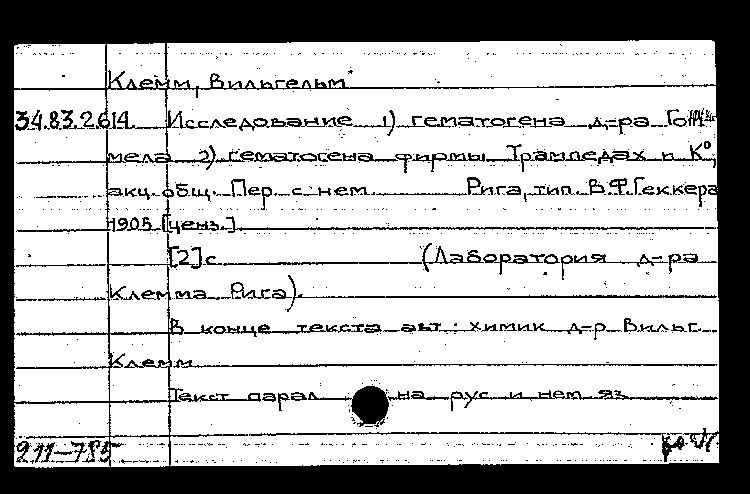 Клемм, Вильгельм
34.83.2614. Исследование 1) гематогена д-ра Гом-
меля 2) гематогена фирмы Трампедах и К°,
акц. общ. Пер. с нем. Рига, тип. В.Ф.Геккера
1905 [ценз.].
[2]с. (Лаборатория д-ра
Клемма. Рига).
В конце текста авт.: химик д-р Вильг.
Клемм
Текст парал. на рус. и нем. яз.
211—785